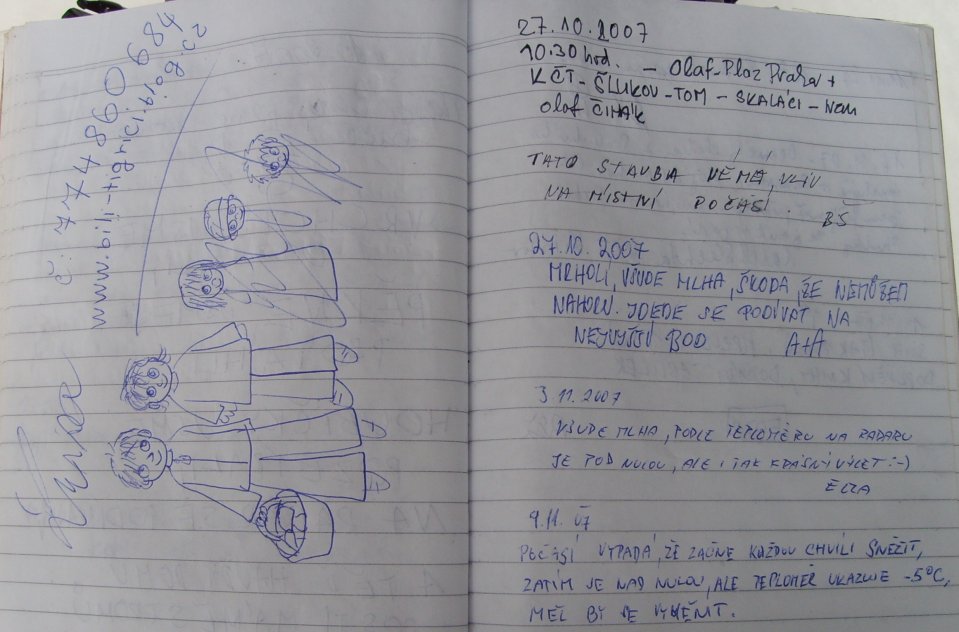 č: 774860684
www.bili-tygrici.blog.cz
27.10.2007
10.30 hod. – Olaf-Ploz Praha +
KČT – ŠLUKOV – TOM – SKALÁCI – 
Olaf ČIHÁK
TATO STAVBA NĚMÁ VLIV
NA MÍSTNÍ POČASÍ. BŠ
27.10.2007
MRHOLÍ, VŠUDE MLHA, ŠKODA, ŽE NEMŮŽEM
NAHORU. JDEDE SE PODÍVAT NA
NEJVYŠŠÍ BOD A+A
3.11.2007
VŠUDE MLHA, PODLE TEPLOMĚRU NA RADARU
JE POD NULOU, ALE I TAK KRÁSNÝ VÝLET :-)
9.11. 07
POČASÍ VYPADÁ, ŽE ZAČNE KAŽDOU CHVÍLI SNĚŽIT,
ZATÍM JE NAD NULOU, ALE TEPLOMĚR UKAZUJE -5°C,
MĚL BY SE VYMĚNIT.